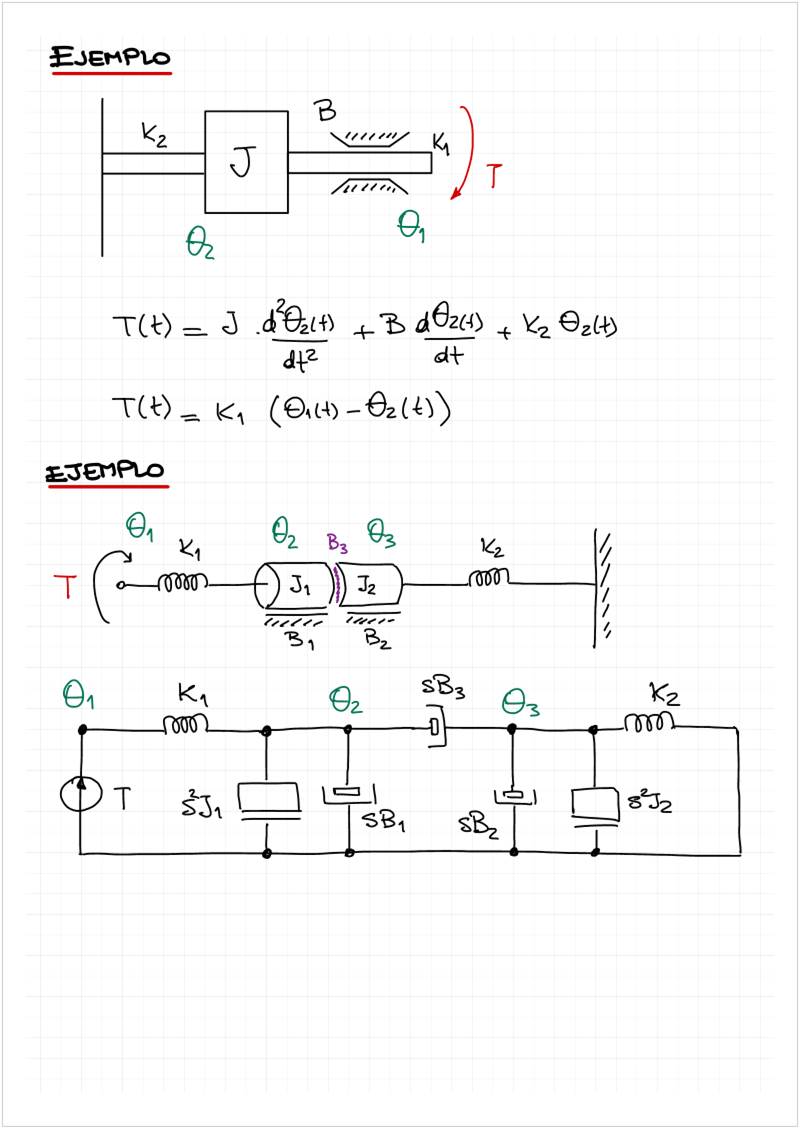 EJEMPLO
K₂ J B K₁ T
θ₂ θ₁
T(t) = J · d²θ₂(t)/dt² + B dθ₂(t)/dt + K₂ θ₂(t)
T(t) = K₁ (θ₁(t) - θ₂(t))
EJEMPLO
θ₁ θ₂ B₃ θ₃
K₁ K₂
T J₁ J₂
B₁ B₂
θ₁ K₁ θ₂ sB₃ θ₃ K₂
T s²J₁ sB₁ sB₂ s²J₂